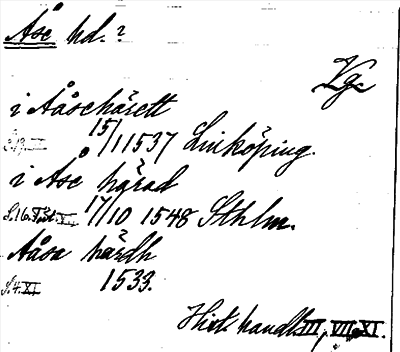 Åse hd.?
Vg.
i Aåsehärett
15/11 1537 Linköping.
i Åse härad
S.16. 17/10 1548 Sthlm.
Aåsa härdh
S.4.XI 1533.
Hist. handl. III, VII, XI.